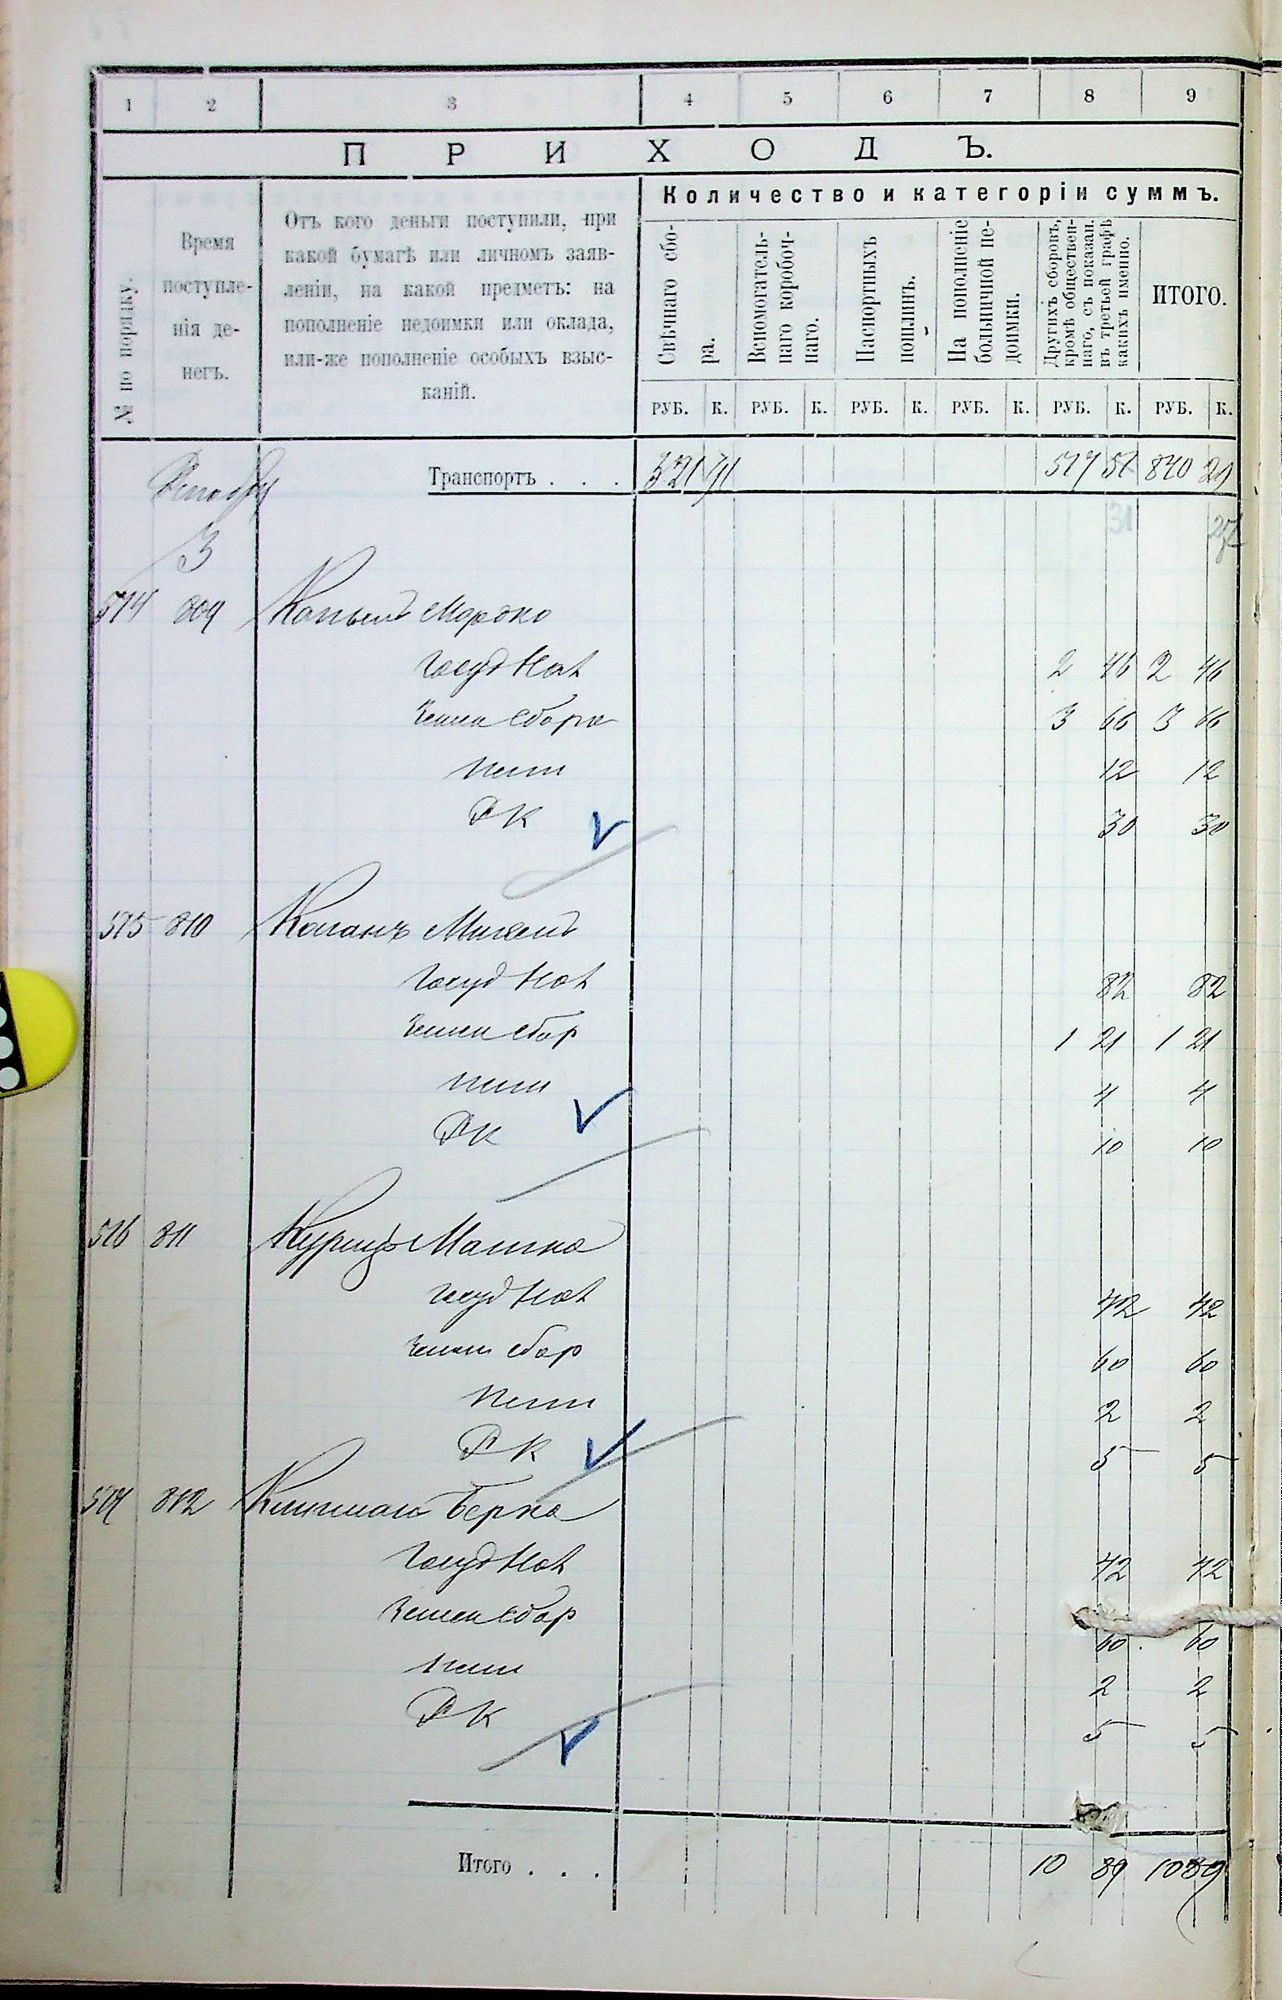 1 2 3 4 5 6 7 8 9
ПРИХОДЪ.
№ по порядку.
Время
поступле-
нія де-
негъ.
Отъ кого деньги поступили, при
какой бумагѣ или личномъ заяв-
леніи, на какой предметъ: на
пополненіе недоимки или оклада,
или-же пополненіе особыхъ взыс-
каній.
Количество и категоріи суммъ.
Свѣчнаго сбо-
ра.
Вспомогатель-
наго коробоч-
наго.
Паспортныхъ
пошлинъ.
На пополненіе
больничной не-
доимки.
Другихъ сборовъ,
кромѣ обществен-
наго, съ показан.
въ третьей графѣ
какихъ именно.
ИТОГО.
РУБ. К. РУБ. К. РУБ. К. РУБ. К. РУБ. К. РУБ. К.
Транспортъ . . . 321 71 517 51 840 29
31
3
574 809 Копылъ Мордко
Госуд Нал 2 46 2 46
Земск сбора 3 66 3 66
Пени 12 12
РК 30 30
575 810 Коганъ
Госуд Нал 82 82
Земск сбор 1 21 1 21
Пени 4 4
РК 10 10
576 811 Курицъ
Госуд Нал 42 42
Земск сбор 60 60
Пени 2 2
РК 5 5
577 812 Берка
Госуд Нал 42 42
Земск сбор 60 60
Пени 2 2
РК 5 5
Итого . . . 10 89 10 89